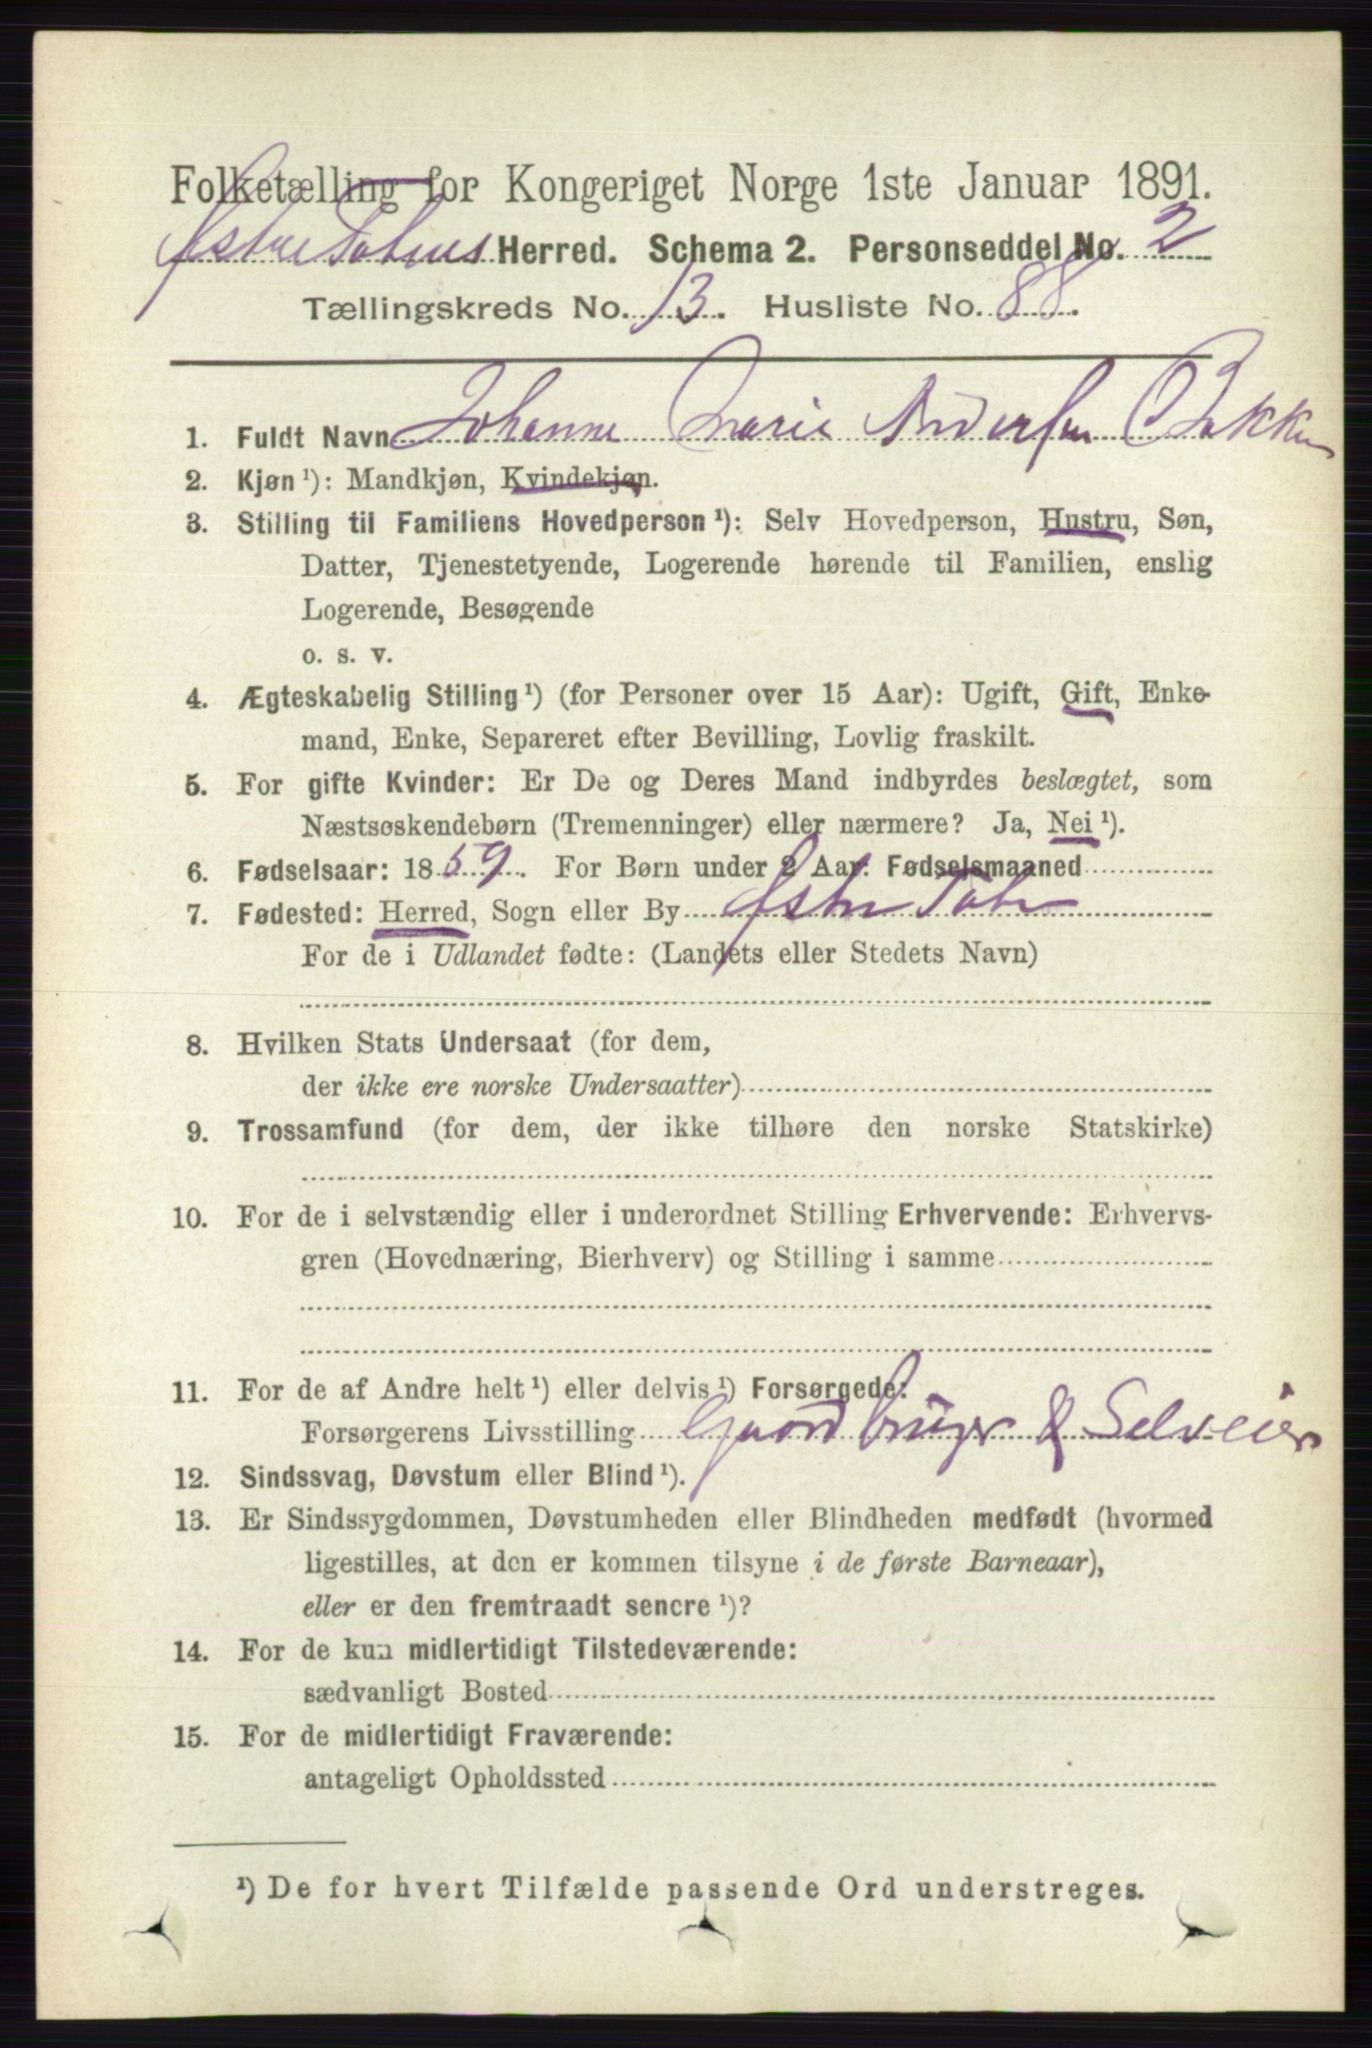 Folketælling for Kongeriget Norge 1ste Januar 1891.
Østre Totens Herred. Schema 2. Personseddel No. 2
Tællingskreds No. 13. Husliste No. 88.
1. Fuldt Navn Johanne Marie Andersen Bakken
2. Kjøn ¹): Mandkjøn, Kvindekjøn.
3. Stilling til Familiens Hovedperson ¹): Selv Hovedperson, Hustru, Søn,
Datter, Tjenestetyende, Logerende hørende til Familien, enslig
Logerende, Besøgende
o. s. v.
4. Ægteskabelig Stilling ¹) (for Personer over 15 Aar): Ugift, Gift, Enke-
mand, Enke, Separeret efter Bevilling, Lovlig fraskilt.
5. For gifte Kvinder: Er De og Deres Mand indbyrdes beslægtet, som
Næstsøskendebørn (Tremenninger) eller nærmere? Ja, Nei ¹).
6. Fødselsaar: 1859. For Børn under 2 Aar: Fødselsmaaned
7. Fødested: Herred, Sogn eller By Østre Toten
For de i Udlandet fødte: (Landets eller Stedets Navn)
8. Hvilken Stats Undersaat (for dem,
der ikke ere norske Undersaatter)
9. Trossamfund (for dem, der ikke tilhøre den norske Statskirke)
10. For de i selvstændig eller i underordnet Stilling Erhvervende: Erhvervs-
gren (Hovednæring, Bierhverv) og Stilling i samme
11. For de af Andre helt ¹) eller delvis ¹) Forsørgede:
Forsørgerens Livsstilling Gaardbruger & Selveier
12. Sindssvag, Døvstum eller Blind ¹).
13. Er Sindssygdommen, Døvstumheden eller Blindheden medfødt (hvormed
ligestilles, at den er kommen tilsyne i de første Barneaar),
eller er den fremtraadt senere ¹)?
14. For de kun midlertidigt Tilstedeværende:
sædvanligt Bosted
15. For de midlertidigt Fraværende:
antageligt Opholdssted
¹) De for hvert Tilfælde passende Ord understreges.